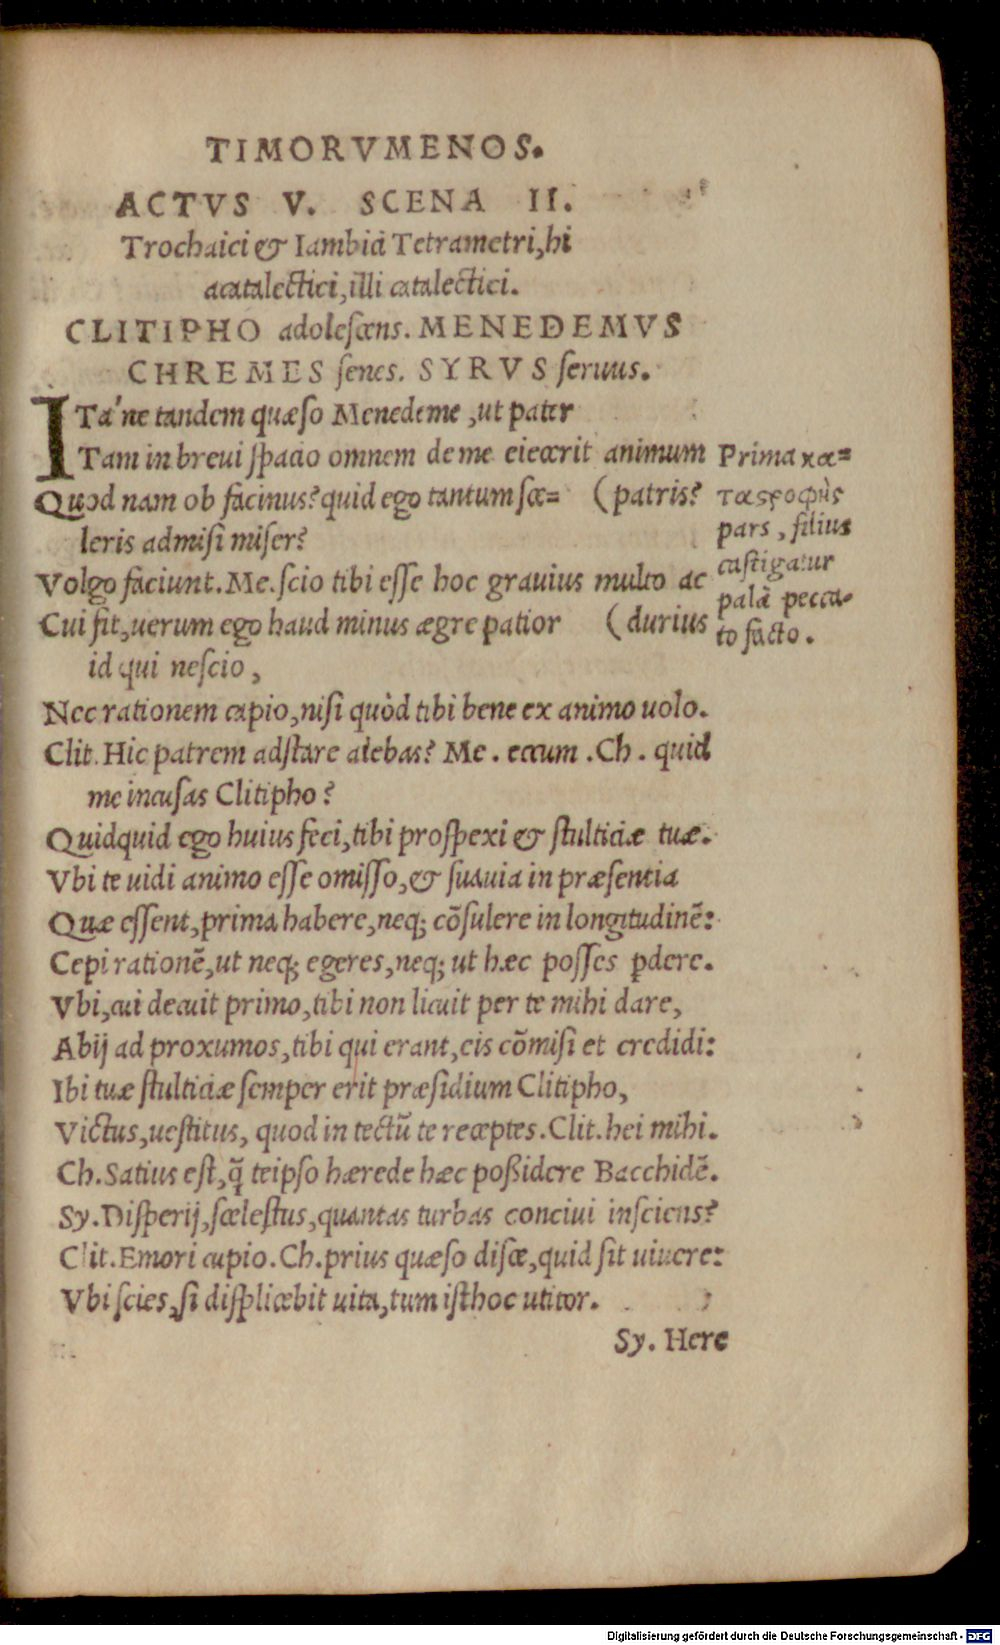 TIMORVMENOS.
ACTVS V. SCENA II.
Trochaici & Iambici Tetrametri, hi
acatalectici, illi catalectici.
CLITIPHO adolescens. MENEDEMVS
CHREMES senes. SYRVS seruus.
ITa'ne tandem quæso Menedeme, ut pater
Tam in breui spacio omnem de me eiecerit animum
Quod nam ob facinus? quid ego tantum sce= (patris?
leris admisi miser?
Volgo faciunt. Me. scio tibi esse hoc grauius multo ac
Cui fit, uerum ego haud minus ægre patior (durius
id qui nescio,
Nec rationem capio, nisi quòd tibi bene ex animo uolo.
Clit. Hic patrem adstare aiebas? Me. eccum. Ch. quid
me incusas Clitipho?
Quidquid ego huius feci, tibi prospexi & stulticiæ tuæ.
Vbi te uidi animo esse omisso, & suauia in præsentia
Quæ essent, prima habere, neq; cõsulere in longitudinẽ:
Cepi rationẽ, ut neq; egeres, neq; ut hæc posses pdere.
Vbi, cui decuit primo, tibi non licuit per te mihi dare,
Abij ad proxumos, tibi qui erant, eis cõmisi et credidi:
Ibi tuæ stulticiæ semper erit præsidium Clitipho,
Victus, uestitus, quod in tectũ te receptes. Clit. hei mihi.
Ch. Satius est, q̃ teipso hærede hæc possidere Bacchidẽ.
Sy. Disperij, scelestus, quantas turbas conciui insciens?
Clit. Emori cupio. Ch. prius quæso disce, quid sit uiuere:
Vbi scies, si displicebit uita, tum isthoc utitor.
Sy. Here
Prima κα=
ταςροφῆς
pars, filius
castigatur
palã pecca-
to facto.
Digitalisierung gefördert durch die Deutsche Forschungsgemeinschaft - DFG